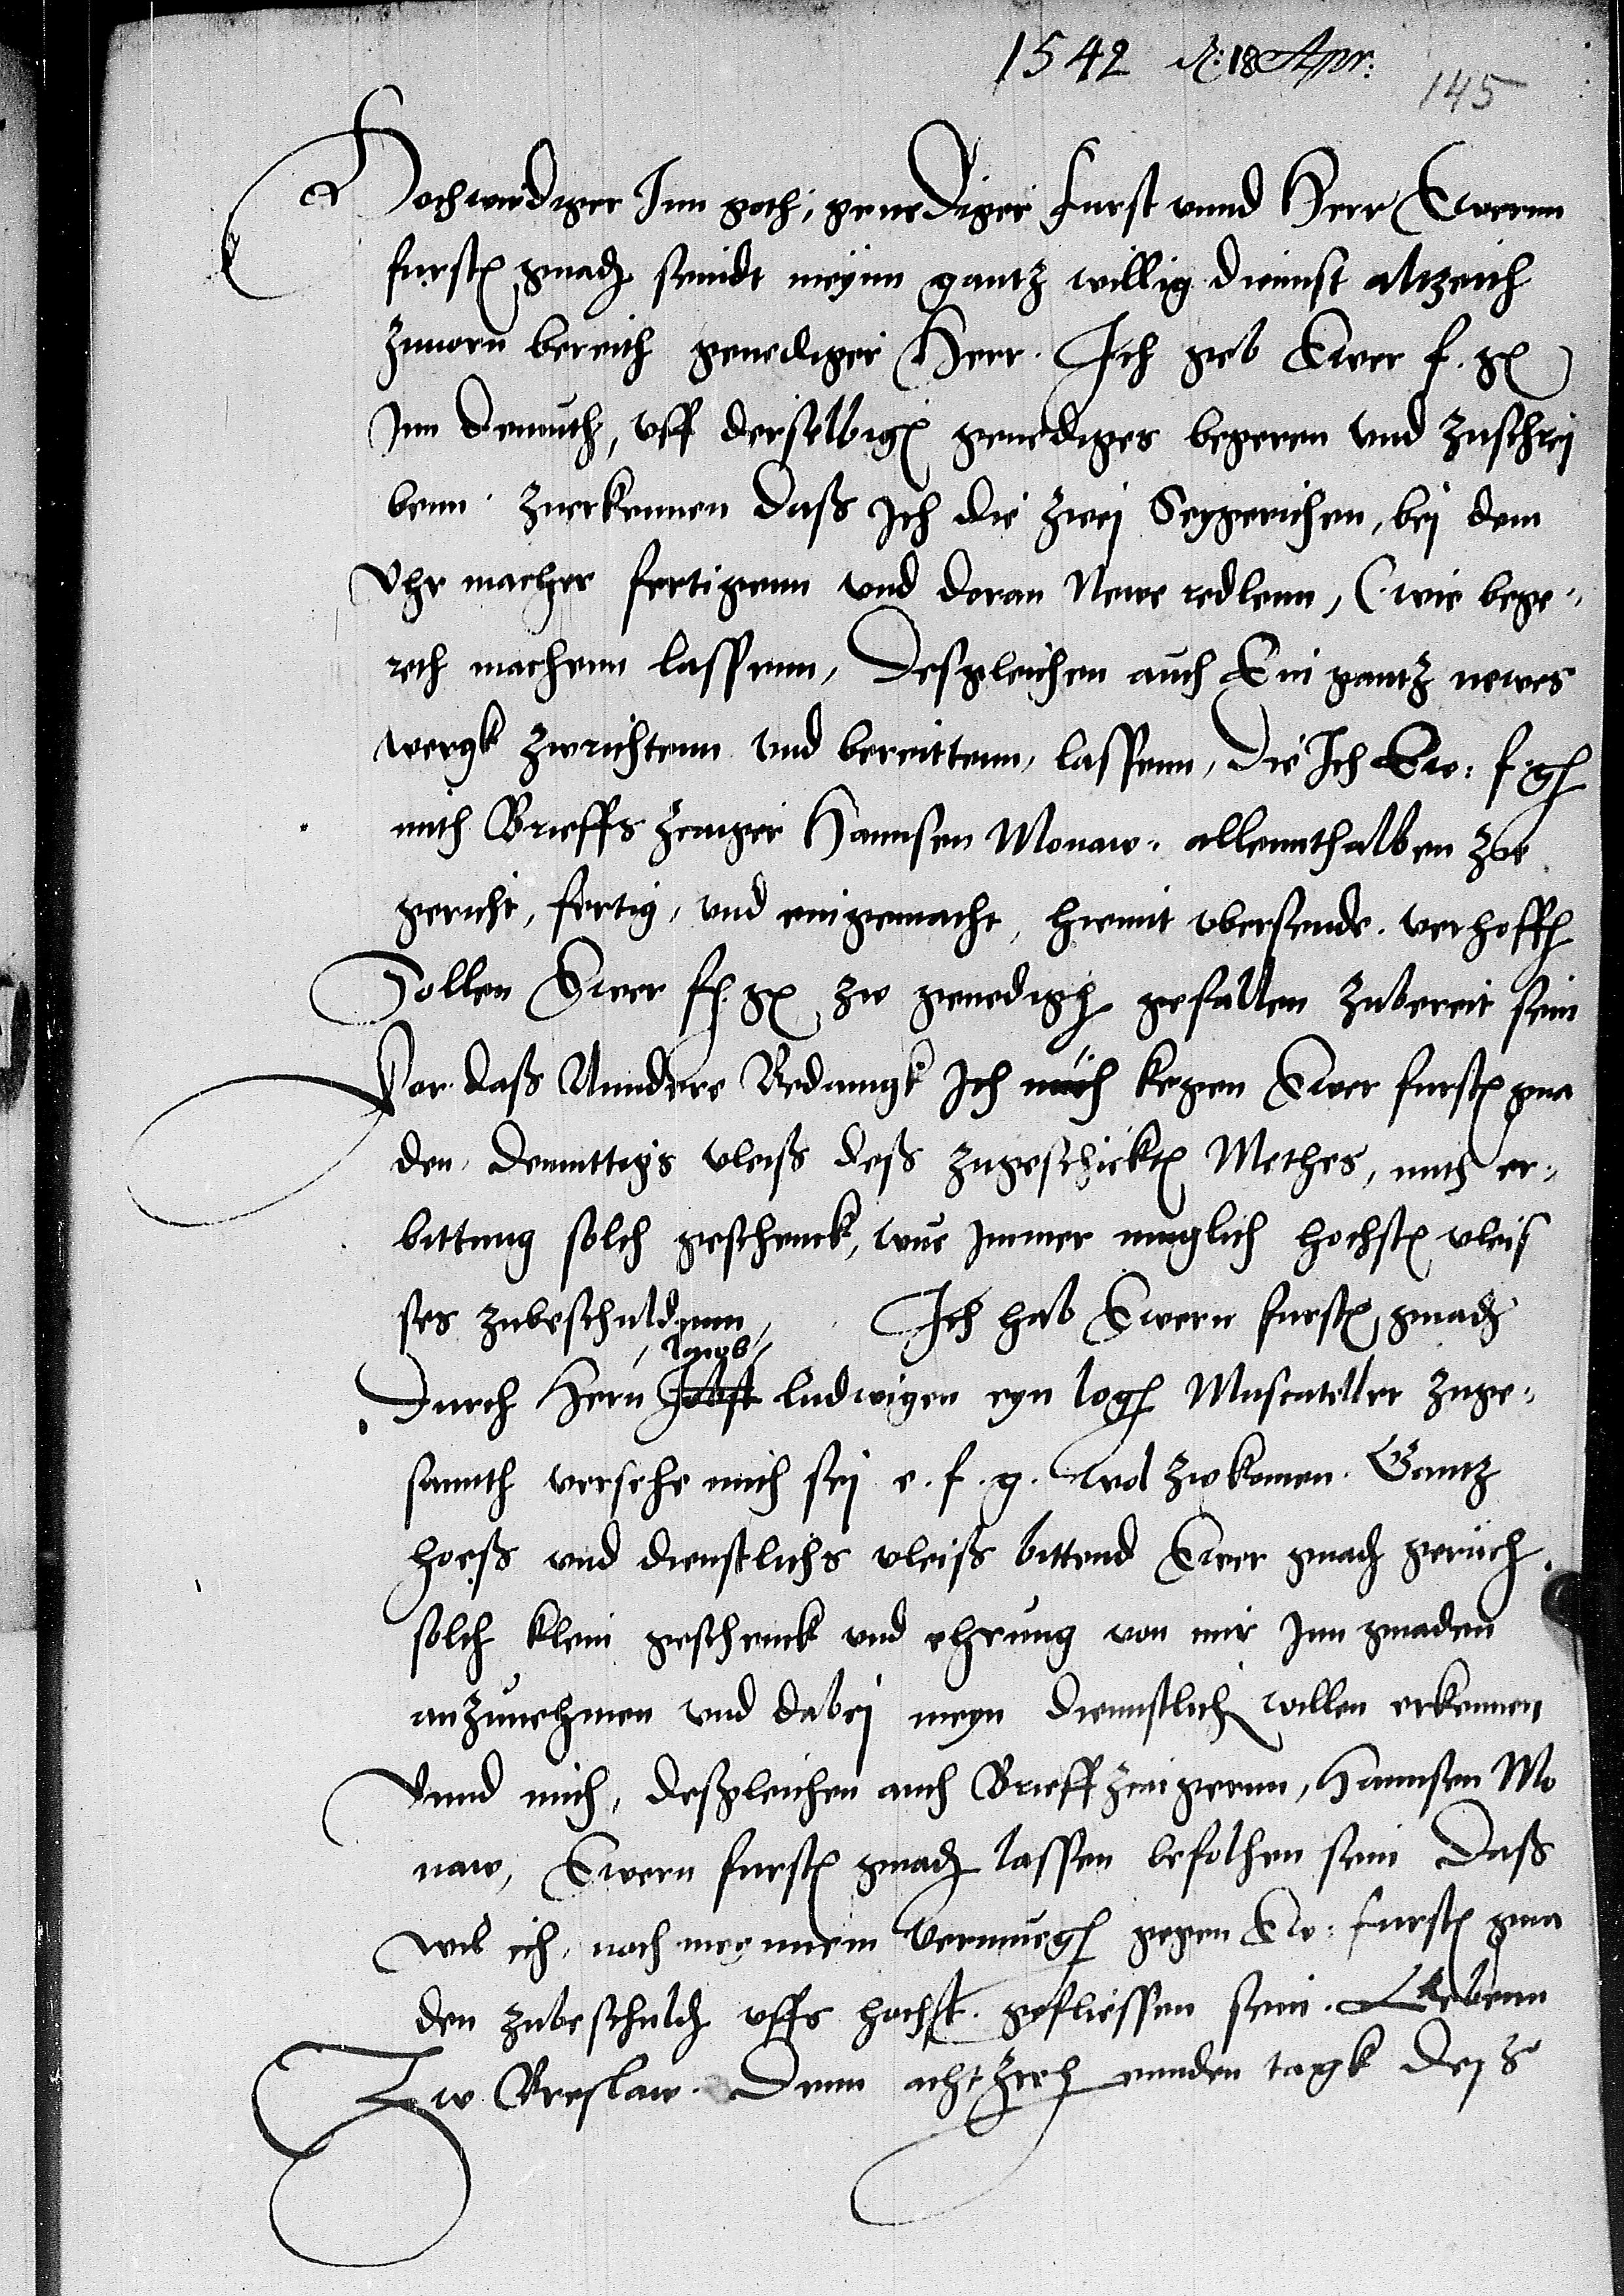 1542 d: 18 Apr:
145
Hochwirdiger Inn goth, genediger Furst vnnd Herr Ewernn
furstl gnad seindt meynn gantz willig dinnst altzeith
zuuorn bereith genediger Herr. Ich geb Ewer f. g
Inn demuth, vff derselbigen genediges begeren vnd zuschrei
benn zuerkennen daß Ich die zwei Seygerichen, bei dem
Vhr macher fertigenn vnd doran Newe redlenn, (wie bege,,
reth machenn lassenn, Desgleichen auch Ein gantz newes
wergk zurichtenn vnd bereittenn, lassenn, Die Ich Ew: f g
mith Brieffs zeiger Hannsen Monaw. allennthalben zw
gericht, fertig, vnd eingemacht, hiemit vbersende. verhoff
Sollen Ewer f g zw genedigen gefallen zubereit sein
Vor daß Annders Bedanngk Ich mich kegen Ewer furstl gna
den, demuttigs vleiß deß zugeschickten Methes, mith er,,
bittung solch geschenck, wue Immer muglich hochsten vleis
ses zubeschuldenn, Ich hab Ewern furstl gnad
Durch Hern Jobst Ludwigen eyn log Muscateller zuge,,
sannth versehe mich sei e. f. g. wol zwkomen. Gantz
hoeß vnd dienstlichs vleiß bittend Ewer gnad geruch
solch klein geschenck vnd ehrung von mir Inn gnaden
anzunehmen vnd dabei meyn dinnstlich willen erkennen
Vnnd mich, deßgleichen auch Brieff zeigernn, Hannsen Mo
naw, Ewern furstl gnad lassen befolhen sein Daß
wil ich, noch meynnem vermueg gegen Ew: furstl gna
den zubeschuld vffs hochst. gefliessen sein. Gebenn
Zw Breslaw. Denn achtzeh ennden tagk deß